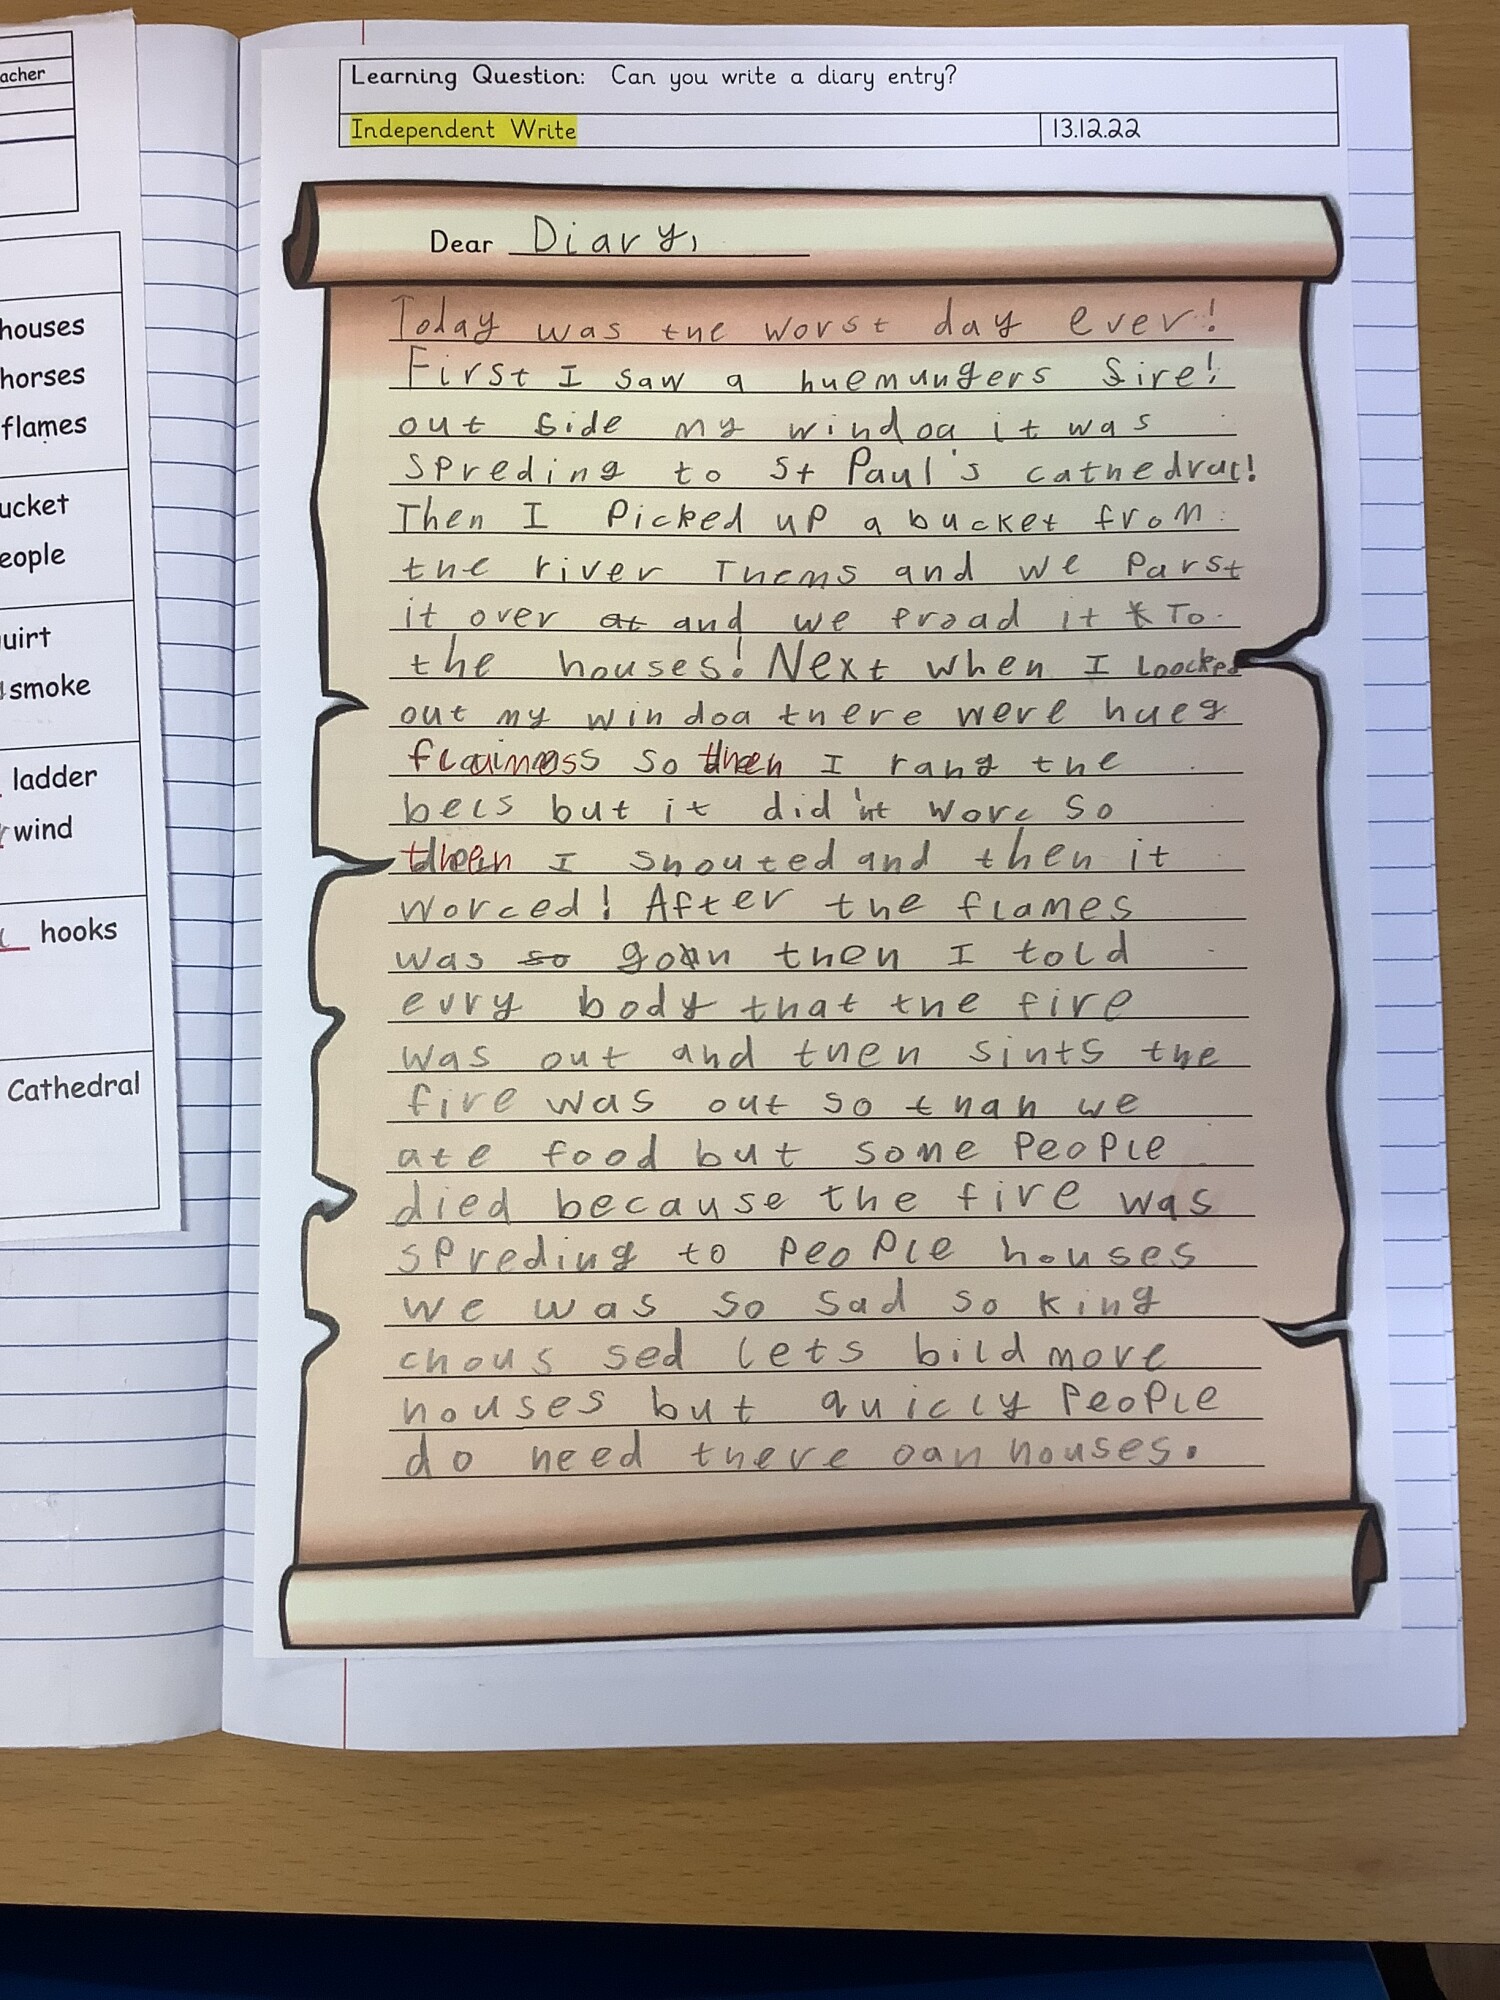 acher
houses
horses
flames
ucket
eople
uirt
smoke
ladder
wind
hooks
Cathedral
Learning Question: Can you write a diary entry?
Independent Write 13.12.22
Dear Diary,
Today was the worst day ever!
First I saw a huemungers fire!
out side my windoa it was
spreding to St Paul's cathedral!
Then I Picked up a bucket from
the river Thems and we Parst
it over at and we proad it To
the houses! Next when I Loocked
out my windoa there were hueg
so then I rang the
bels but it did'nt worc so
then I shouted and then it
worced! After the flames
was so goan then I told
evry body that the fire
was out and then sints the
fire was out so than we
ate food but some People
died because the fire was
spreding to people houses
we was so sad so king
chous sed lets bild more
houses but quicly People
do need there oan houses.